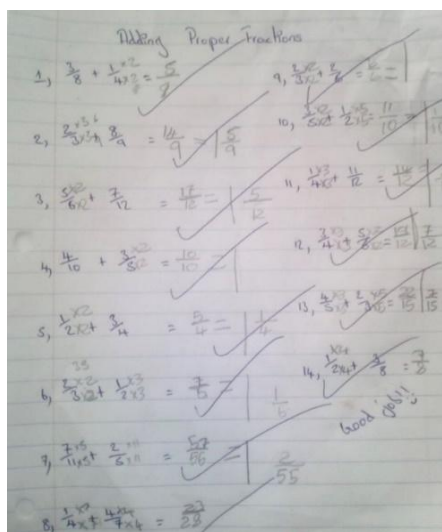 Adding Proper Fractions
1, 3/8 + 1/4 ×2 ×2 = 5/8
2, 2/3 ×3 ×3 + 8/9 = 14/9 = 1 5/9
3, 5/6 ×2 ×2 + 7/12 = 17/12 = 1 5/12
4, 4/10 + 3/5 ×2 ×2 = 10/10 = 1
5, 1/2 ×2 ×2 + 3/4 = 5/4 = 1 1/4
6, 2/3 ×2 ×2 + 1/2 ×3 ×3 = 7/ = 1 1/6
7, 7/11 ×5 ×5 + 2/5 ×11 ×11 = 57/ = 1 2/55
8, 1/4 + 4/7 ×4 ×4 = 23/28
9, 2/3 ×2 ×2 + 2/ = = 1
10, ×2 + 1/2 ×5 ×5 = 11/10 = 1
11, 1/4 ×3 ×3 + 11/12 = 14/12 = 1
12, 3/4 + 5/ = /12 1 7/12
13, 4/5 ×3 + 2/3 ×5 = /15 1 7/15
14, 1/2 ×4 ×4 + 3/8 = 7/8
Good job!!